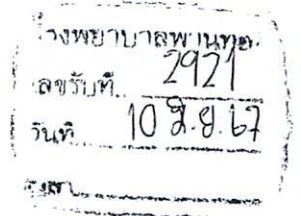 โรงพยาบาลพานทอง
เลขรับที่ 2921
วันที่ 10 มิ.ย. 67